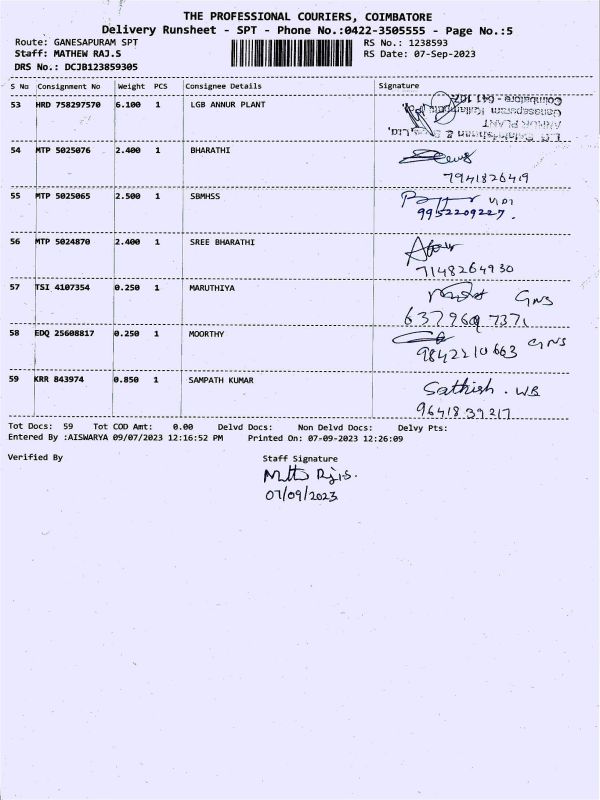 THE PROFESSIONAL COURIERS, COIMBATORE
Delivery Runsheet - SPT - Phone No.:0422-3505555 - Page No.:5
Route: GANESAPURAM SPT RS No.: 1238593
Staff: MATHEW RAJ.S RS Date: 07-Sep-2023
DRS No.: DCJB123859305
S No Consignment No Weight PCS Consignee Details Signature
53 HRD 758297570 6.100 1 LGB ANNUR PLANT
Coimbatore - 641 107
ANNUR PLANT
54 MTP 5025076 2.400 1 BHARATHI
7941826419
55 MTP 5025065 2.500 1 SBMHSS
9952209227.
56 MTP 5024870 2.400 1 SREE BHARATHI
7148264930
57 TSI 4107354 0.250 1 MARUTHIYA
GNS
58 EDQ 25608817 0.250 1 MOORTHY
9842210663 GNS
59 KRR 843974 0.850 1 SAMPATH KUMAR
Sathish . WB
9641839217
Tot Docs: 59 Tot COD Amt: 0.00 Delvd Docs: Non Delvd Docs: Delvy Pts:
Entered By :AISWARYA 09/07/2023 12:16:52 PM Printed On: 07-09-2023 12:26:09
Verified By Staff Signature
07/09/2023